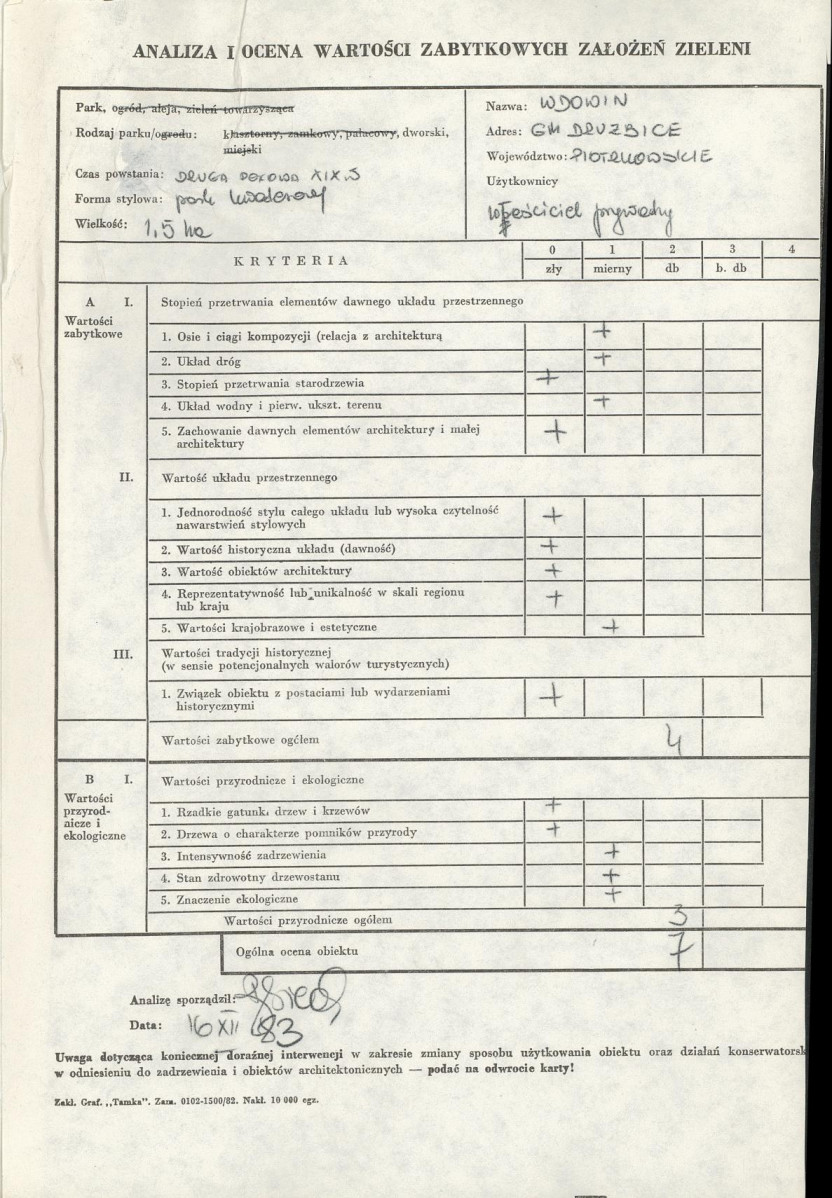 ANALIZA I OCENA WARTOŚCI ZABYTKOWYCH ZAŁOŻEŃ ZIELENI
Park, ogród, aleja, zieleń towarzysząca
Rodzaj parku/ogrodu: klasztorny, zamkowy, pałacowy, dworski,
miejski
Czas powstania: DRUGA POŁOWA XIX W
Forma stylowa: park kwaterowy
Wielkość: 1,5 ha
Nazwa: WDOWIN
Adres: GM DRUŻBICE
Województwo: PIOTRKOWSKIE
Użytkownicy
właściciel prywatny
KRYTERIA
0 1 2 3 4
zły mierny db b. db
A I. Stopień przetrwania elementów dawnego układu przestrzennego
Wartości
zabytkowe
1. Osie i ciągi kompozycji (relacja z architekturą +
2. Układ dróg +
3. Stopień przetrwania starodrzewia +
4. Układ wodny i pierw. ukszt. terenu +
5. Zachowanie dawnych elementów architektury i małej
architektury +
II. Wartość układu przestrzennego
1. Jednorodność stylu całego układu lub wysoka czytelność
nawarstwień stylowych +
2. Wartość historyczna układu (dawność) +
3. Wartość obiektów architektury +
4. Reprezentatywność lub unikalność w skali regionu
lub kraju +
5. Wartości krajobrazowe i estetyczne +
III. Wartości tradycji historycznej
(w sensie potencjonalnych walorów turystycznych)
1. Związek obiektu z postaciami lub wydarzeniami
historycznymi +
Wartości zabytkowe ogółem 4
B I. Wartości przyrodnicze i ekologiczne
Wartości
przyrod-
nicze i
ekologiczne
1. Rzadkie gatunki drzew i krzewów +
2. Drzewa o charakterze pomników przyrody +
3. Intensywność zadrzewienia +
4. Stan zdrowotny drzewostanu +
5. Znaczenie ekologiczne +
Wartości przyrodnicze ogółem 3
Ogólna ocena obiektu 7
Analizę sporządził:
Data: 16 XII 83
Uwaga dotycząca koniecznej doraźnej interwencji w zakresie zmiany sposobu użytkowania obiektu oraz działań konserwatorsk
w odniesieniu do zadrzewienia i obiektów architektonicznych — podać na odwrocie karty!
Zakł. Graf. „Tamka". Zam. 0102-1500/82. Nakł. 10 000 egz.